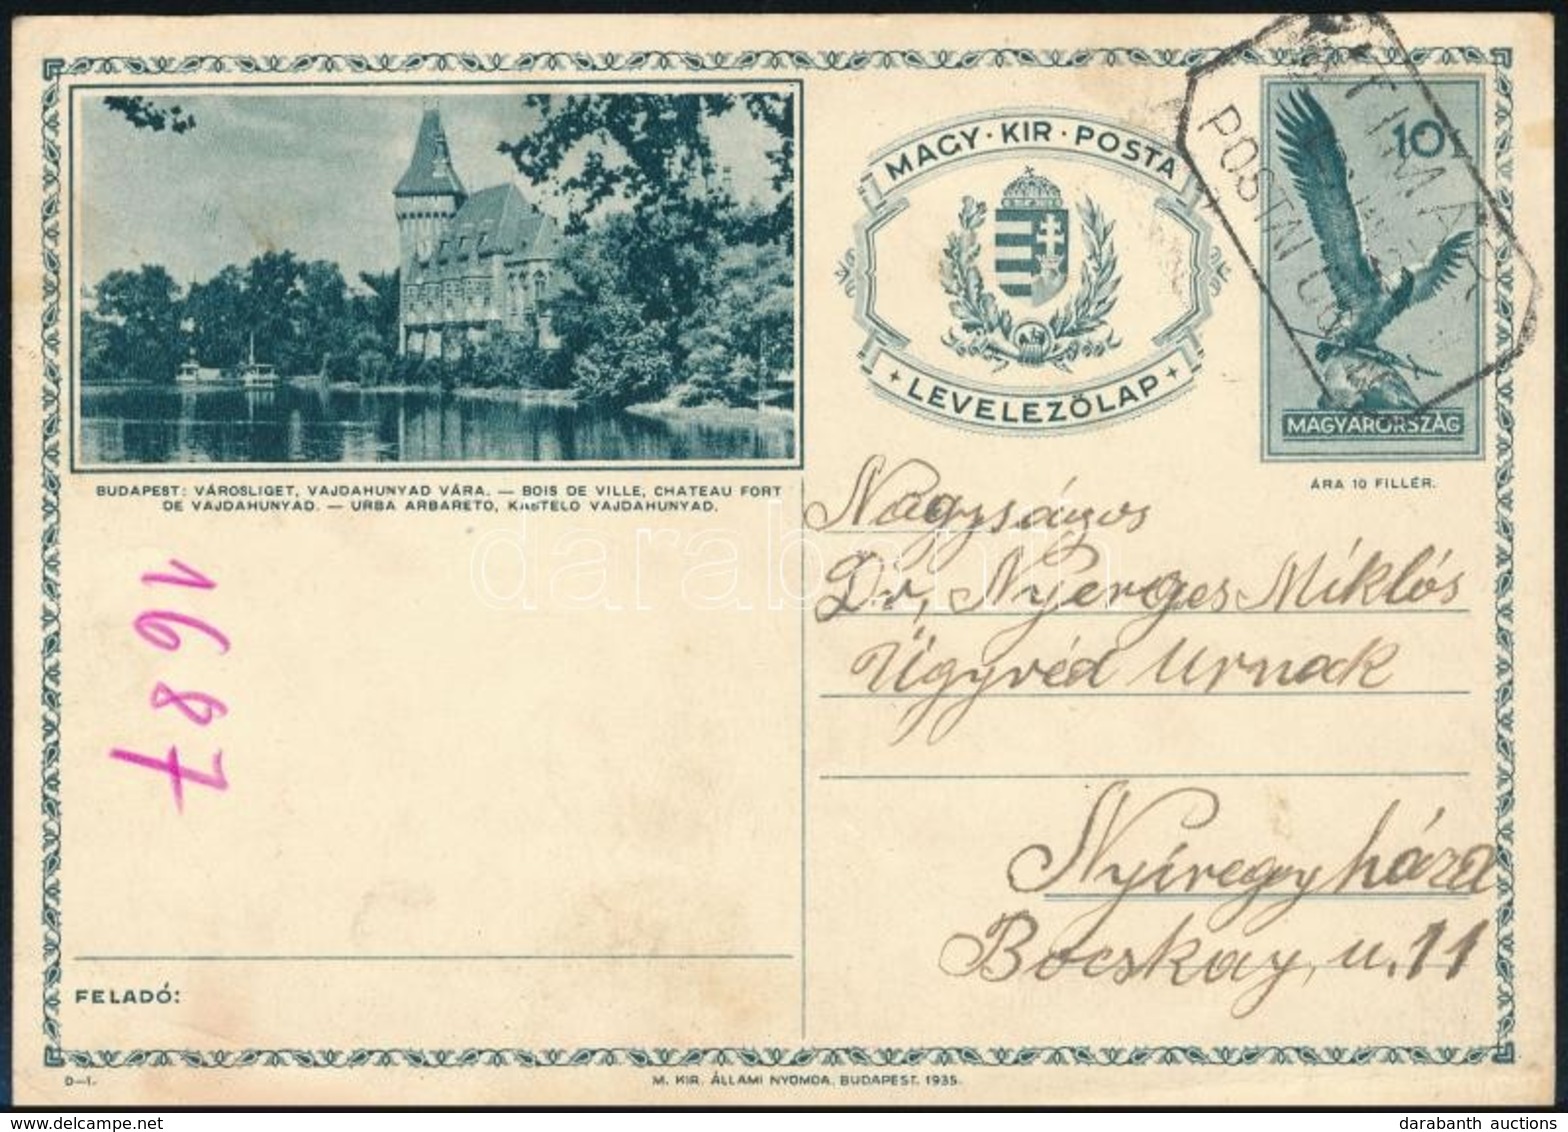 MAGY · KIR · POSTA
LEVELEZŐLAP
10
MAGYARORSZÁG
ÁRA 10 FILLÉR.
TIMÁR
POSTAI ÜGYN
BUDAPEST: VÁROSLIGET, VAJDAHUNYAD VÁRA. — BOIS DE VILLE, CHATEAU FORT
DE VAJDAHUNYAD. — URBA ARBARETO, KASTELO VAJDAHUNYAD.
1687
Nagyságos
Dr, Nyerges Miklós
Ügyvéd Urnak
Nyíregyháza
Bocskay, u. 11
FELADÓ:
D—1.
M. KIR. ÁLLAMI NYOMDA, BUDAPEST. 1935.
darabanth
darabanth auctions